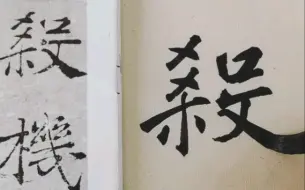 殺機
殺